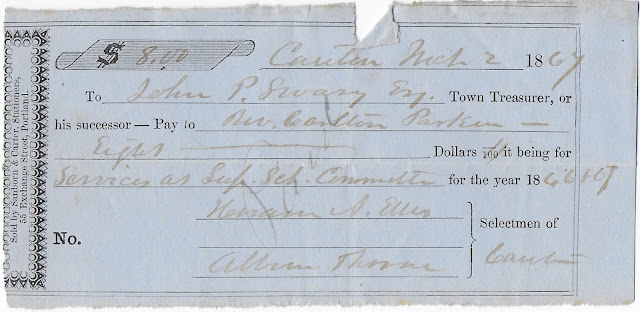 Sold by Sanborn & Carter, Stationers,
55 Exchange Street, Portland.
$ 8.00 Canton Mch 2 1867
To John P. Swasy Esq. Town Treasurer, or
his successor — Pay to Rev. Carlton Parker —
Eight Dollars /100 it being for
Services as Sup. Sch. Committee for the year 1866 &
Selectmen of
No.
Albion Thorne Canton